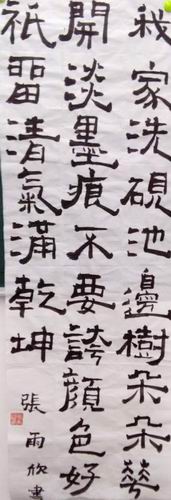 我家洗硯池邊樹朵朵花
開淡墨痕不要誇顏色好
祇留清氣滿乾坤
張雨欣書